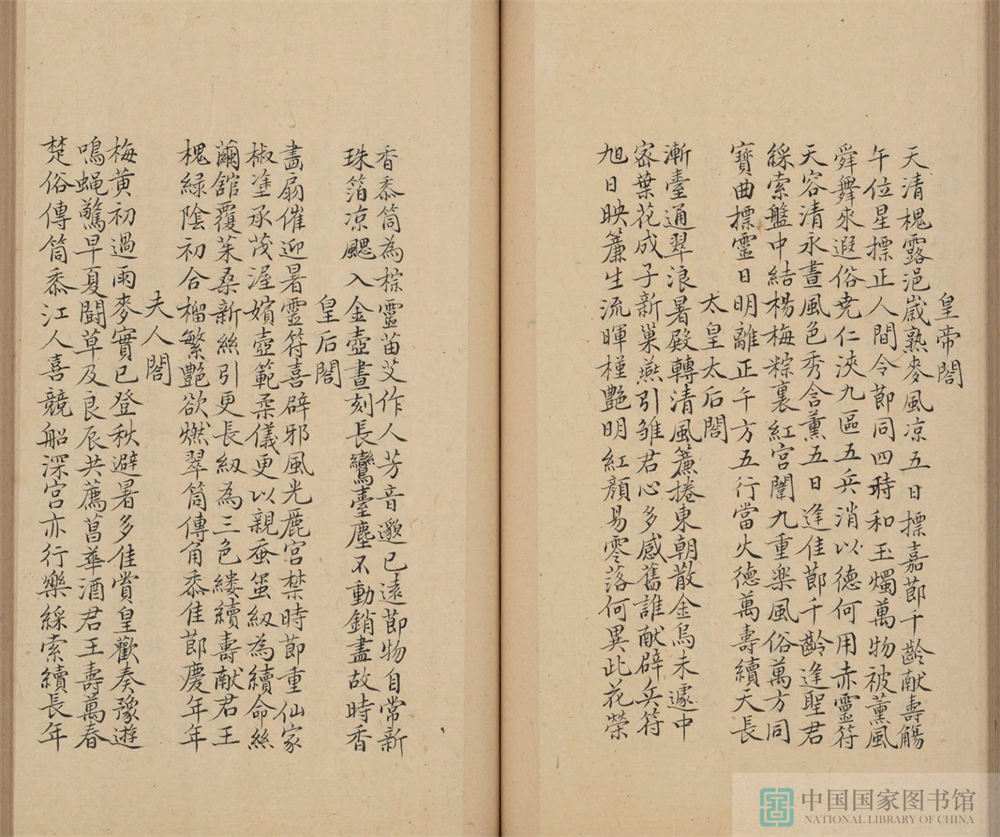 皇帝閤
天清槐露浥歲熟麥風凉五日標嘉節千齡献壽觴
午位星標正人間令節同四時和玉燭萬物被薰風
舜舞來遐俗尭仁浹九區五兵消以德何用赤靈符
天容清永晝風色秀含薰五日逢佳節千齡逢聖君
綵索盤中結楊梅粽裏紅宫闈九重樂風俗萬方同
寶曲標靈日明離正午方五行當火德萬壽續天長
太皇太后閤
漸臺通翠浪暑殿轉清風簾捲東朝散金烏未遽中
宻葉花成子新巢燕引雏君心多感舊誰献辟兵符
旭日映簾生流暉槿艷明紅顏易零落何異此花榮
香黍筒為粽靈苗艾作人芳音邈已遠節物自常新
珠箔凉颸入金壺晝刻長鸞臺塵不動銷盡故時香
皇后閤
畵扇催迎暑靈符喜辟邪風光麗宫禁時節重仙家
椒塗承茂渥嬪壼範柔儀更以親蚕蛋紉為續命絲
繭舘覆柔桑新絲引更長紉為三色縷續壽献君王
槐綠陰初合榴繁艷欲燃翠筒傳角黍佳節慶年年
夫人閤
梅黄初過雨麥實已登秋避暑多佳賞皇歡奏豫遊
鳴蝇驚早夏鬪草及良辰共薦菖華酒君王壽萬春
楚俗傳筒黍江人喜競船深宫亦行樂綵索續長年
中国国家图书馆
NATIONAL LIBRARY OF CHINA